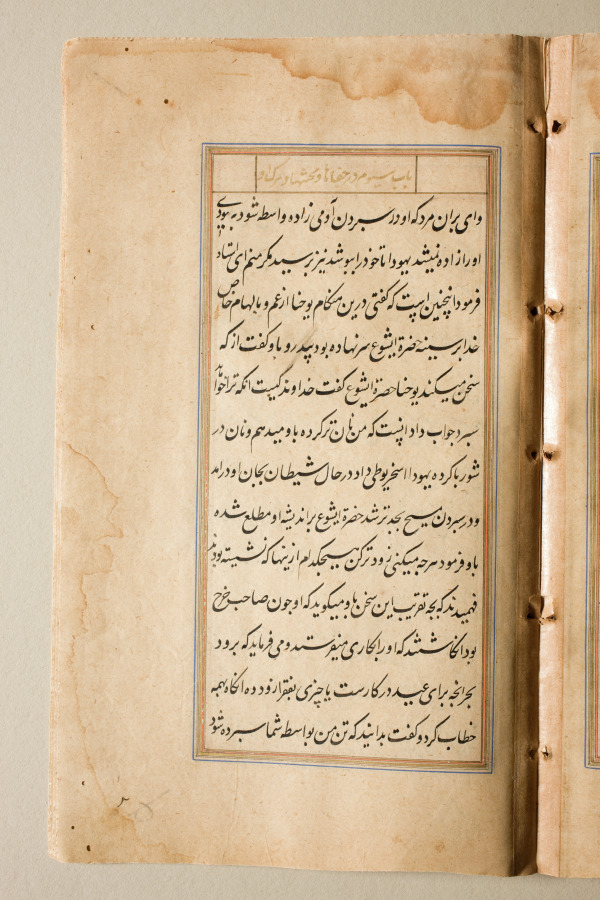 باب سیوم در جفاها و محنتها و مرگ او
وای بران مرد که او در سپردن آدمی زاده واسطه شود به بودی
او را زاده نمیشد یهودا تا خود را بپوشد نیز پرسید مگر منم ای استاد
فرمود اینچنین است که گفتی درین هنگام یوحنا از غم و بالهام خاص
خدا بر سینه حضرة ایشوع سر نهاده بود پیدرو باو گفت از که
سخن میکند یوحنا حضرة ایشوع گفت خداوند کیست انکه ترا خواهد
سپرد جواب داد انست که من نان تر کرده باو میدهم و نان در
شوربا کرده یهودا اسخریوطی داد در حال شیطان بجان او درامد
و در سپردن مسیح بجد تر شد حضرة ایشوع بر اندیشه او مطلع شده
باو فرمود هرچه میکنی زود تر کن هیچکدام ازینها که نشسته بودند
نفهمیدند که بچه تقریب این سخن باو میگوید که او چون صاحب خرج
بود انگاشتند که او را بکاری میفرستد و می فرماید که برود
بخر انچه برای عید در کارست یا چیزی بفقرا زود ده انگاه بهمه
خطاب کرد و گفت بدانید که تن من بواسطه شما سپرده شود